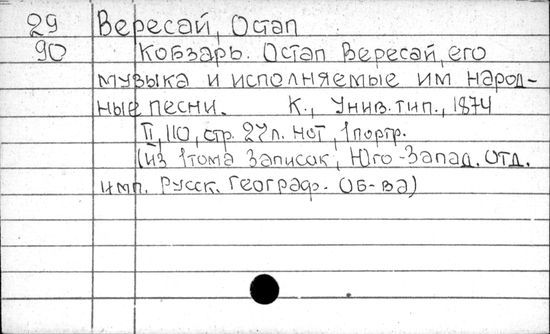 29 Вересай, Остап
90 Кобзарь. Остап Вересай, его
музыка и исполняемые им народ-
ные песни. К., Унив. тип., 1874
II, 110, стр. 27л. нот, 1портр.
(из 1тома Записок, Юго-Запад. отд.
имп. Русск. Географ. Об-ва)